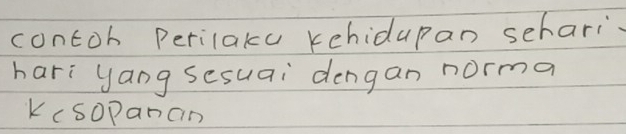 contoh Perilaku kehidupan sehari-
hari yang sesuai dengan norma
kesopanan